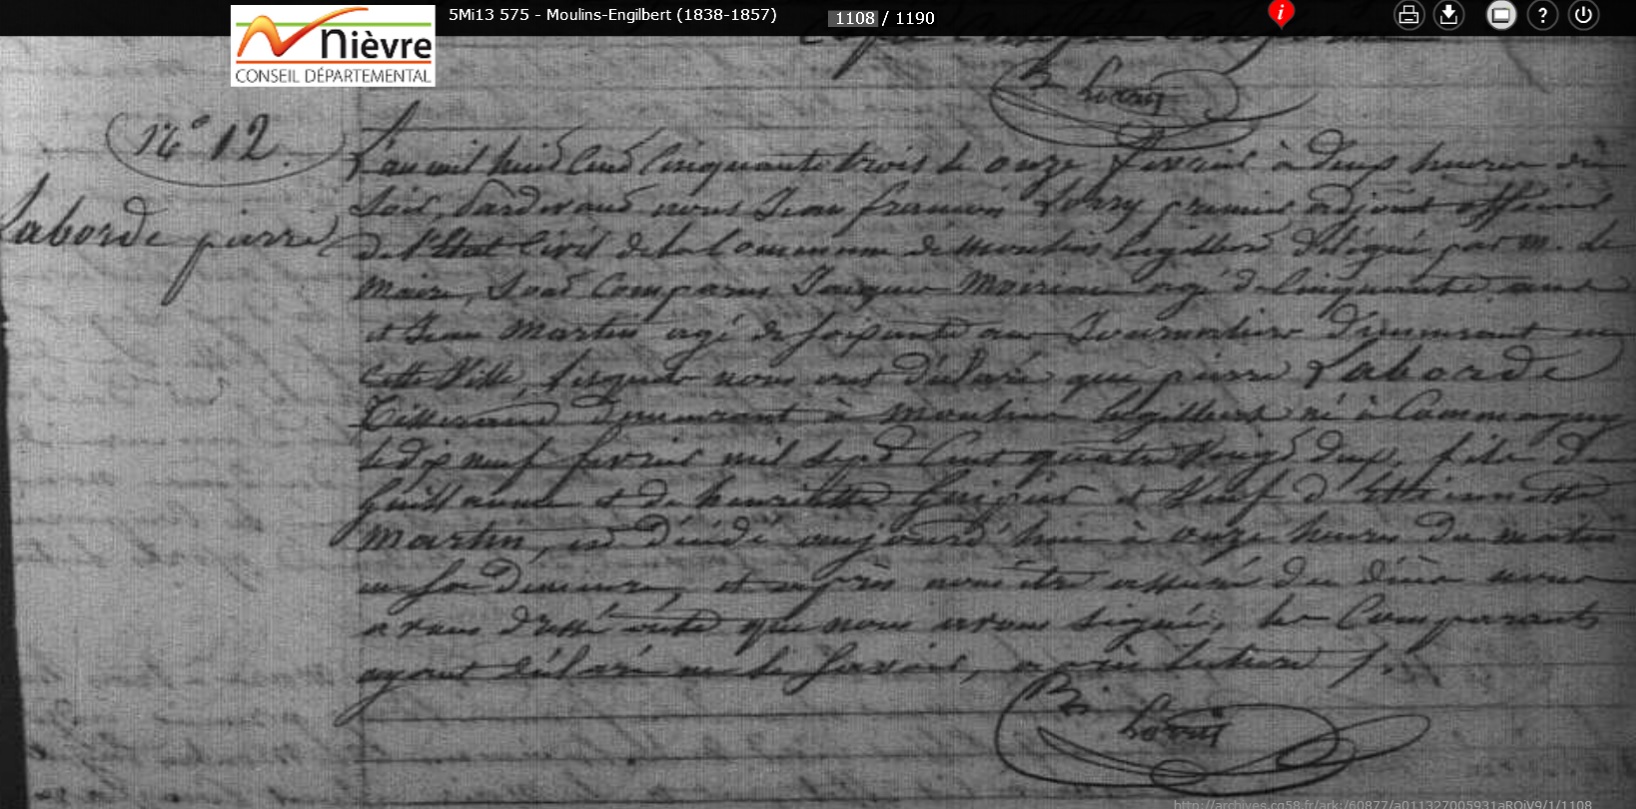 5Mi13 575 - Moulins-Engilbert (1838-1857)
1108 / 1190
Nièvre
CONSEIL DÉPARTEMENTAL
N° 12.
Laborde pierre
L'an mil huit cent cinquante trois le onze fevrier à deux heures du
soir, Pardevant nous Jean premier adjoint officier
de l'Etat Civil de la Commune de Moulins Engilbert délégué par M. le
Maire, sont Comparus Jacques agé de Cinquante ans
et Jean Martin agé de soixante ans Journaliers demeurant en
cette Ville, lesquels nous ont déclaré que pierre Laborde
Tisserand demeurant à Moulins Engilbert né à Commagny
le dix neuf fevrier mil sept Cent quatre Vingt deux, fils de
Guillaume et de henriette et Veuf d'Ettiennette
Martin, est décédé aujourd'hui à onze heures du matin
en sa demeure, et après nous être assuré du décès nous
avons dressé acte que nous avons signé, les Comparants
ayant déclaré ne le savoir, après lecture /.
http://archives.cg58.fr/ark:/60877/a011327005931aROjV9/1/1108